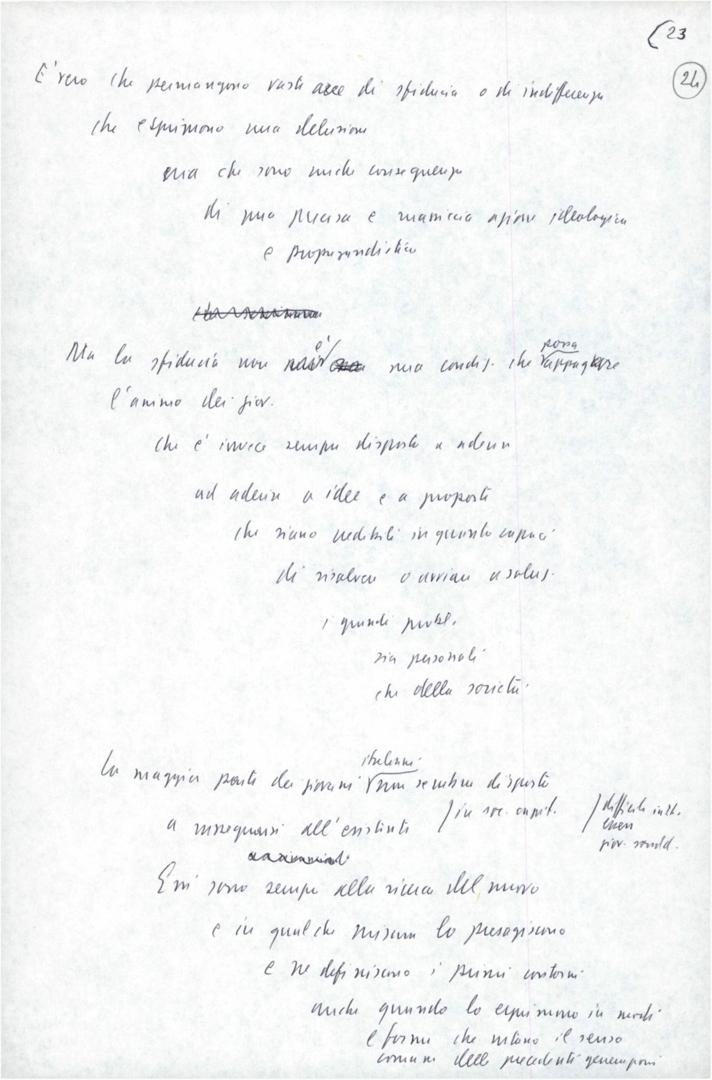 23
24
E' vero che permangono vaste aree di sfiducia o di indifferenza
che esprimono una delusione
ma che sono anche conseguenza
di una precisa e massiccia azione ideologica
e propagandistica
Ma la sfiducia non è una condiz. che possa appagare
l'animo dei giov.
che è invece sempre disposto a aderire
ad aderire a idee e a proposte
che siano credibili in quanto capaci
di risolvere o avviare a soluz.
i grandi probl.
sia personali
che della società
La maggior parte dei giovani italiani non sembra disposta
a rassegnarsi all'esistente / in soc. capit. / difficile
giov.
Essi sono sempre alla ricerca del nuovo
e in qualche misura lo presagiscono
e ne definiscono i primi contorni
anche quando lo esprimono in modi
e forme che urtano il senso
comune delle precedenti generazioni